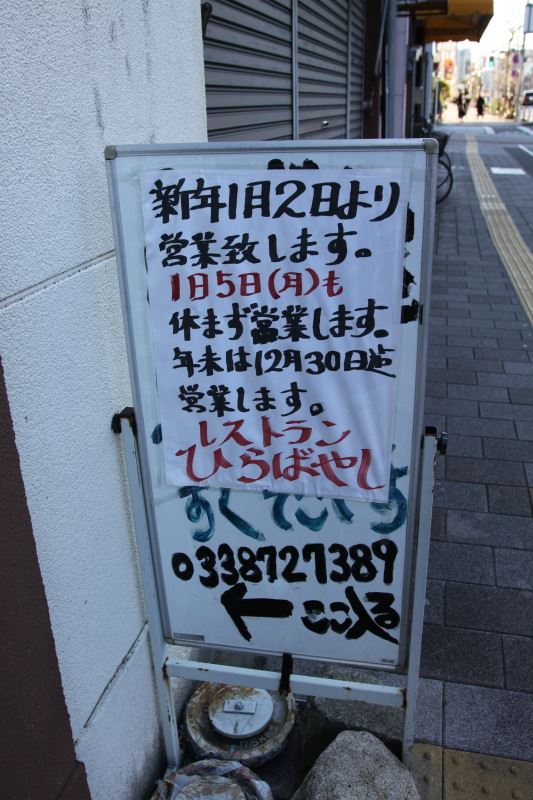 新年1月2日より
営業致します。
1日5日(月)も
休まず営業します。
年末は12月30日迄
営業します。
レストラン
ひらばやし
0338727389
← ここ入る